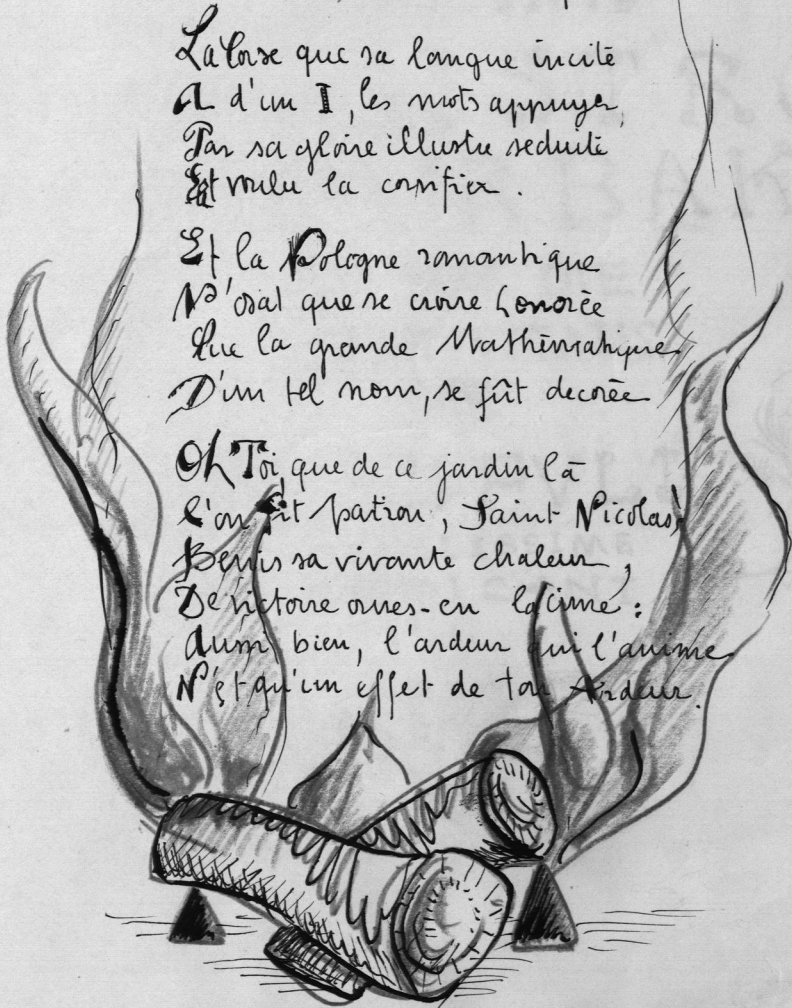 La Corse que sa langue incite
A d'un I, les mots appuyer,
Par sa gloire illustre seduite
Eut voulu la corsifier.
Et la Pologne romantique
N'osat que se croire honorée
Que la grande Mathématique
D'un tel nom, se fût decorée
Oh Toi, que de ce jardin là
l'on fit patron, Saint Nicolas,
Benis sa vivante chaleur,
De victoire ornes-en la cime :
Aussi bien, l'ardeur qui l'anime
N'est qu'un effet de ton Ardeur.